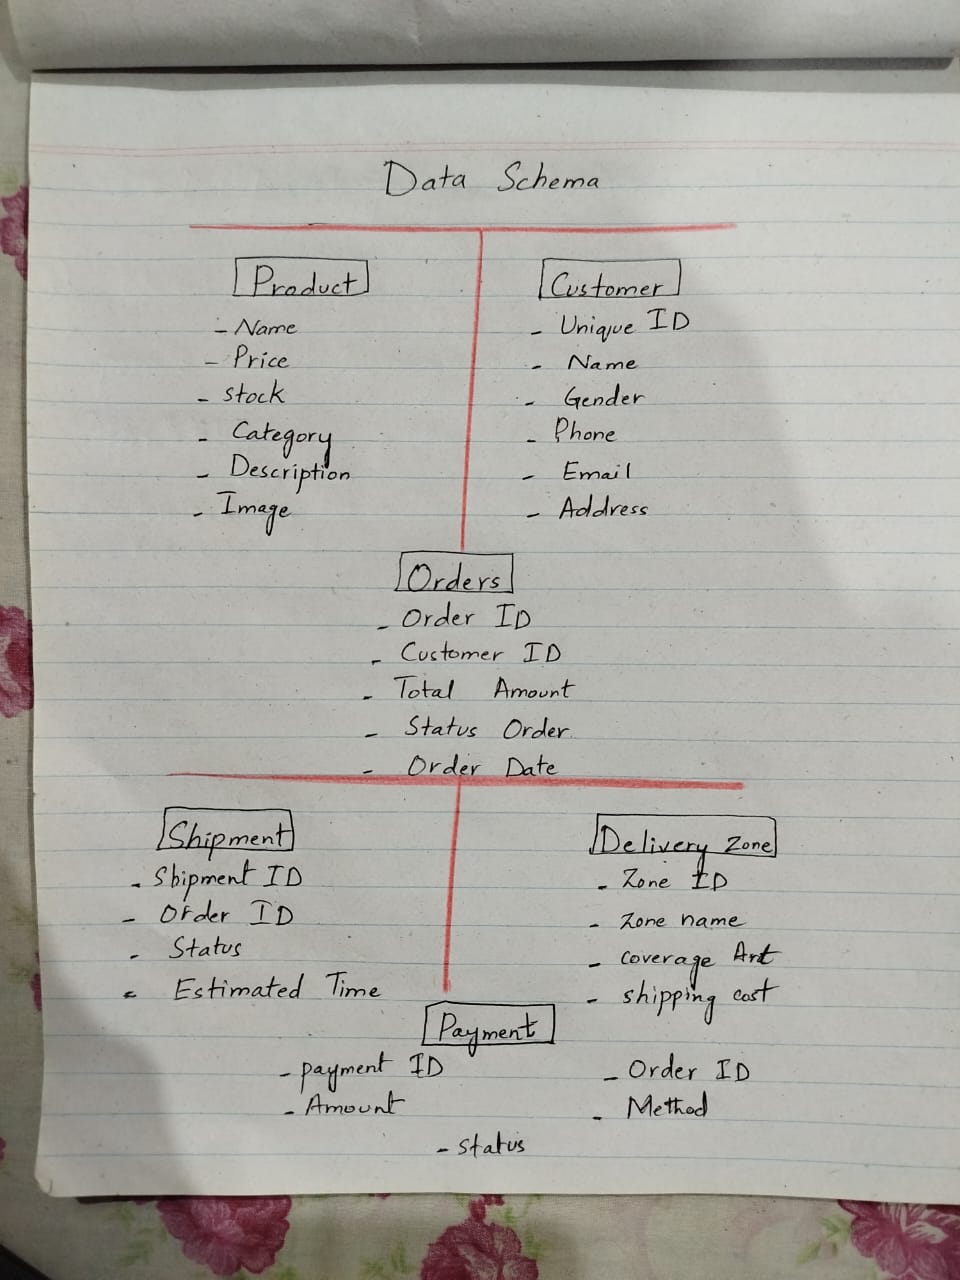 Data Schema
Product
- Name
- Price
- stock
- Category
- Description
- Image
Customer
- Unique ID
- Name
- Gender
- Phone
- Email
- Address
Orders
- Order ID
- Customer ID
- Total Amount
- Status Order
- Order Date
Shipment
- Shipment ID
- Order ID
- Status
- Estimated Time
Delivery Zone
- Zone ID
- Zone name
- coverage
- shipping cost
Payment
- payment ID
- Order ID
- Amount
- Method
- status